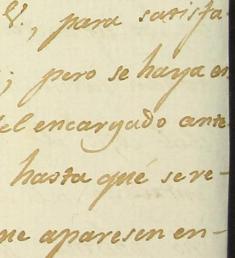 &., para satisfa-
; pero se haya en
del encargado ante-
hasta qué se re-
ue aparesen en-